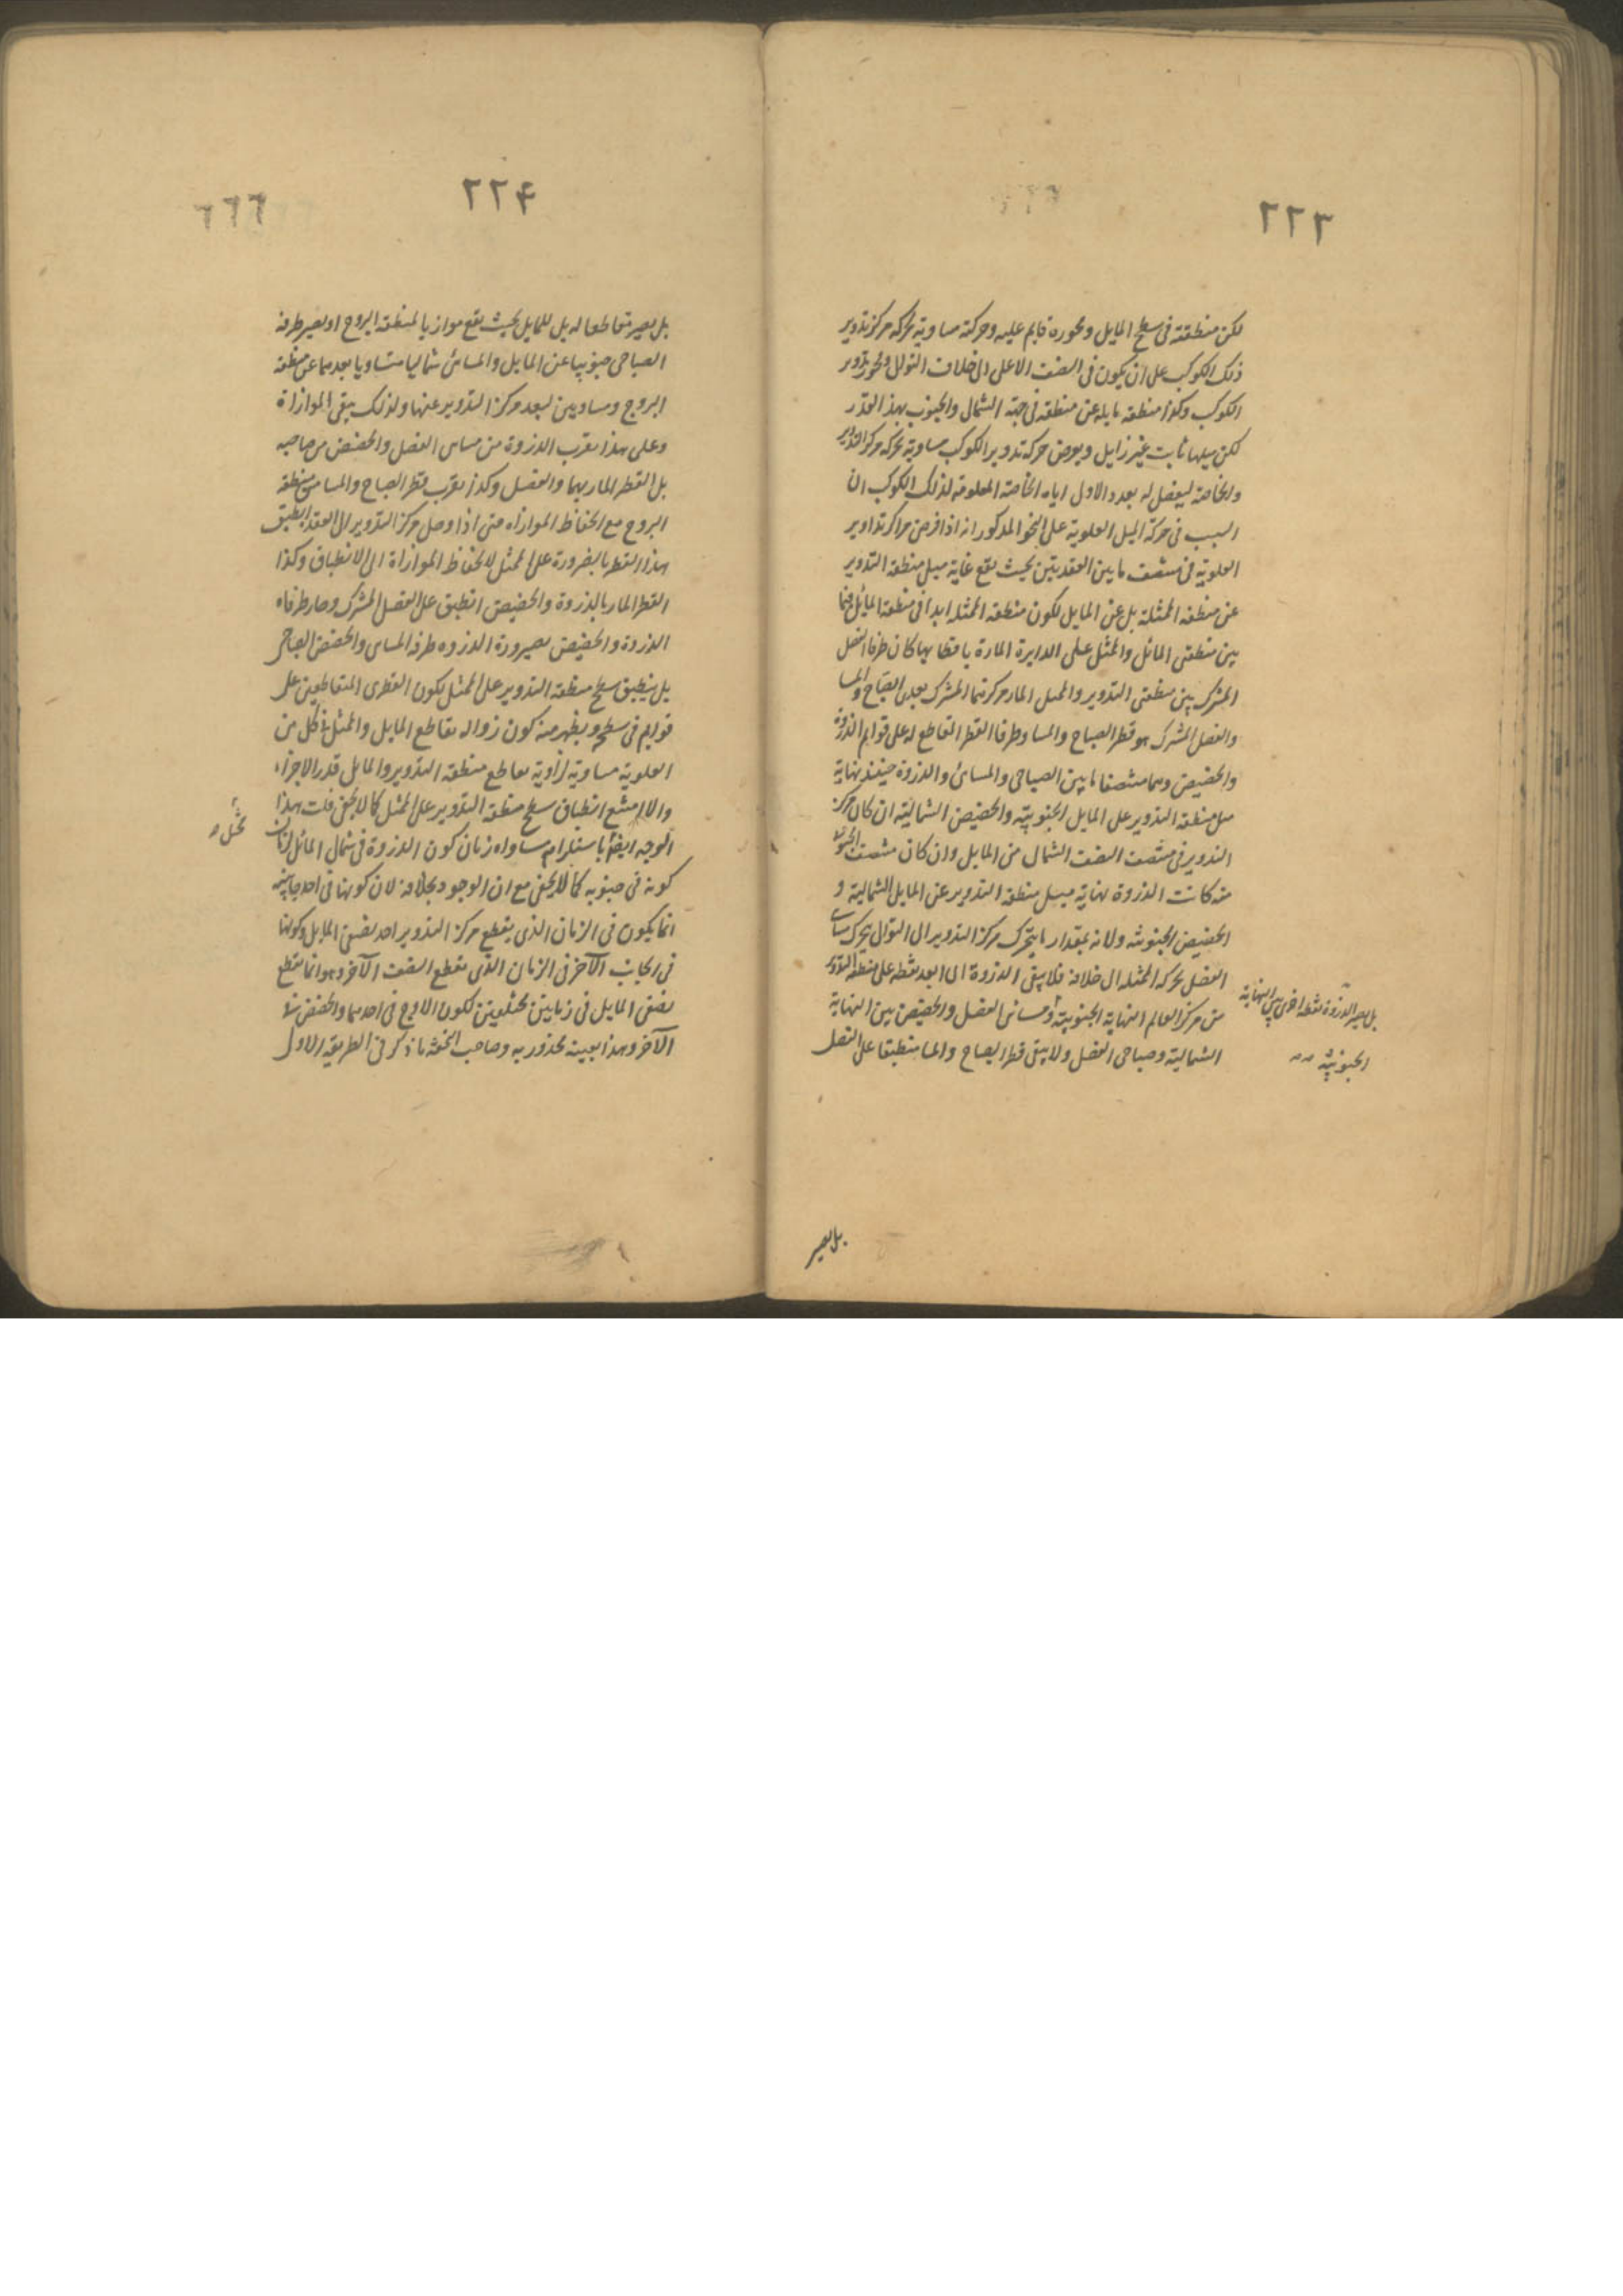 ٢٢٣
لكن منطقته فى سطح المايل ومحوره قايم عليه وحركته مساوية لحركة مركز تدوير
ذلك الكوكب على ان يكون فى النصف الاعلى الى خلاف التوالى ومحور تدوير
الكوكب وكذا منطقته مايلة عن منطقته فى جهة الشمال والجنوب بهذا القدر
لكن ميلها ثابت غير زايل ويعرض حركة تدوير الكوكب مساوية لحركة مركز التدوير
والخاصة ليفضل له بعد رد الاول اياه الخاصة المعلومة لذلك الكوكب ان
السبب فى حركة الميل العلوية على النحو المذكور انه اذا فرض مراكز تداوير
العلوية فى منتصف ما بين العقدتين بحيث يقع غاية ميل منطقة التدوير
عن منطقة الممثلة بل عن المايل لكون منطقة الممثلة ابدا فى منطقة المايل فيما
بين منطقتى المائل والممثل على الدايرة المارة باقطابها كان طرفا الفصل
المشترك بين منطقتى التدوير والمايل المار بمركزيهما المشترك بعدى الصباح والمسا
والفصل المشترك هو قطر الصباح والمسا وطرفا القطر القاطع له على قوايم الذروة
والحضيض وهما منتصفا ما بين الصباحى والمسائى والذروة حينئذ نهاية
ميل منطقة التدوير على المايل الجنوبية والحضيض الشمالية ان كان مركز
التدوير فى منتصف النصف الشمال من المايل وان كان منتصف الجنوبى
منه كانت الذروة نهاية ميل منطقة التدوير عن المايل الشمالية و
الحضيض الجنوبية ولانه بمقدار ما يتحرك مركز التدوير الى التوالى يتحرك
الفصل بحركة الممثلة الى خلافه فلا يبقى الذروة الى ابعد نقطة على منطقة التدوير
من مركز العالم النهاية الجنوبية ومسائى الفصل والحضيض بين النهاية
الشمالية وصباحى الفصل ولا يبقى قطر الصباح والمسا منطبقا على الفصل
بل يصير الذروة نقطة اخرى بين النهاية
الجنوبية
بل يصير
٢٢۴
٦٦٦
بل يصير مقاطعا له بل للمايل بحيث يقع موازيا لمنطقة البروج او يصير طرفه
الصباحى جنوبيا عن المايل والمسائى شماليا متساويا بعدهما عن منطقة
البروج ومساويين لبعد مركز التدوير عنها ولذلك يبقى الموازاة
وعلى هذا يقرب الذروة من مسائى الفصل والحضيض من صباحيه
بل القطر المار بهما والفصل وكذا يقرب قطر الصباح والمسا من منطقة
البروج مع انحفاظ الموازاة حتى اذا وصل مركز التدوير الى العقد انطبق
هذا القطر بالضرورة على الممثل لانحفاظ الموازاة الى الانطباق وكذا
القطر المار بالذروة والحضيض انطبق على الفصل المشترك وصار طرفاه
الذروة والحضيض بصيرورة الذروه طرفه المسائى والحضيض الصباحى
بل ينطبق سطح منطقة التدوير على الممثل لكون القطرى المتقاطعين على
قوايم فى سطحه ويظهر منه كون زواله تقاطع المايل والممثل فى كل من
العلوية مساوية لزاوية تقاطع منطقة التدوير والمايل قدر الاجزاء
والا امتنع انطباق سطح منطقة التدوير على الممثل كما لا يخفى قلت هذا
الوجه ايضا باستلزام مساواه زمان كون الذروة فى شمال المائل لزمان
كونه فى جنوبه كما لا يخفى مع ان الوجود بخلافه لان كونها فى احد جانبيه
انما يكون فى الزمان الذى يقطع مركز التدوير احد نصفى المايل وكونها
فى الجانب الآخر فى الزمان الذى يقطع النصف الآخر وهو انما يقطع
نصفى المايل فى زمانين مختلفين لكون الاوج فى احدهما والحضيض فى
الآخر وهذا بعينه محذور به وصاحب التحفة ما ذكر فى الطريقة الاول
مختل